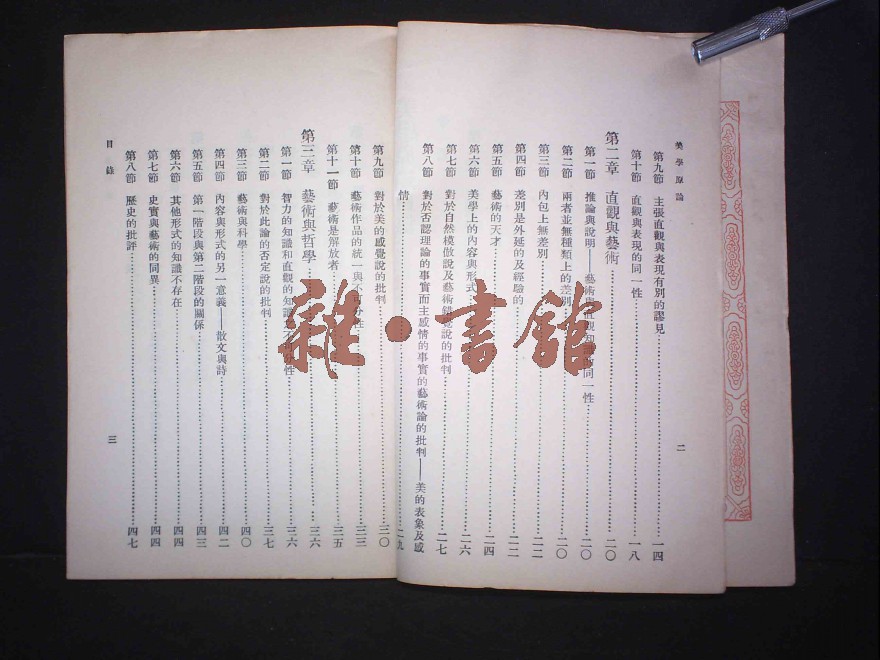 美學原論
第九節 主張直觀與表現有別的謬見 一四
第十節 直觀與表現的同一性 一八
第二章 直觀與藝術 二〇
第一節 推論與說明——藝術與直觀知識的同一性 二〇
第二節 兩者並無種類上的差別 二〇
第三節 內包上無差別 二二
第四節 差別是外延的及經驗的 二二
第五節 藝術的天才 二四
第六節 美學上的內容與形式 二六
第七節 對於自然模倣說及藝術錯覺說的批判 二七
第八節 對於否認理論的事實而主感情的事實的藝術論的批判——美的表象及感
情 二九
二
第九節 對於美的感覺說的批判 三〇
第十節 藝術作品的統一與不可分性 三三
第十一節 藝術是解放者 三五
第三章 藝術與哲學 三六
第一節 智力的知識和直觀的知識的不可分性 三六
第二節 對於此論的否定說的批判 三七
第三節 藝術與科學 四〇
第四節 內容與形式的另一意義——散文與詩 四二
第五節 第一階段與第二階段的關係 四三
第六節 其他形式的知識不存在 四四
第七節 史實與藝術的同異 四四
第八節 歷史的批評 四七
目錄
三
雜·書館